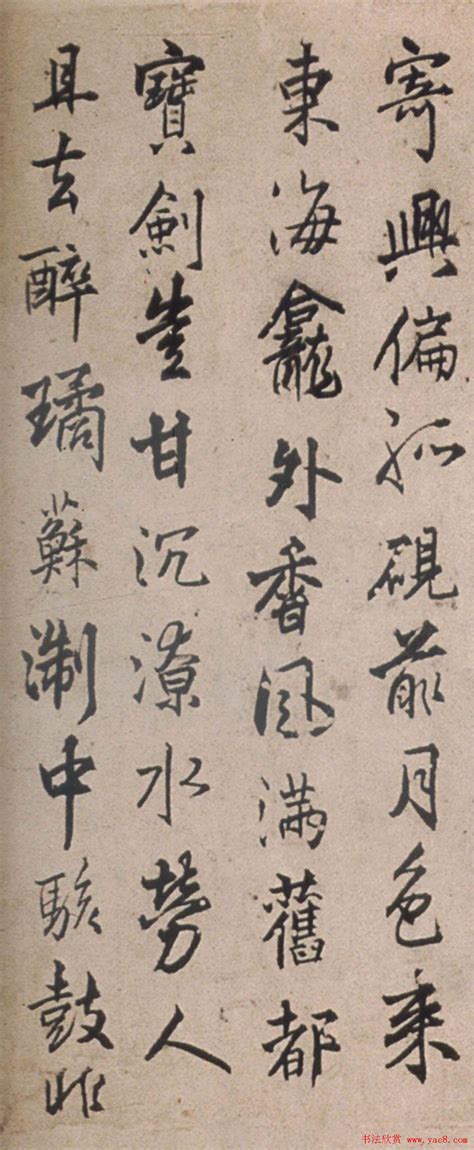 寄興偏孤硯前月色来
東海龕外香風满舊都
寶劍豈甘沉潦水勞人
且去醉璚蘇淛中駭鼓
书法欣赏 www.yac8.com